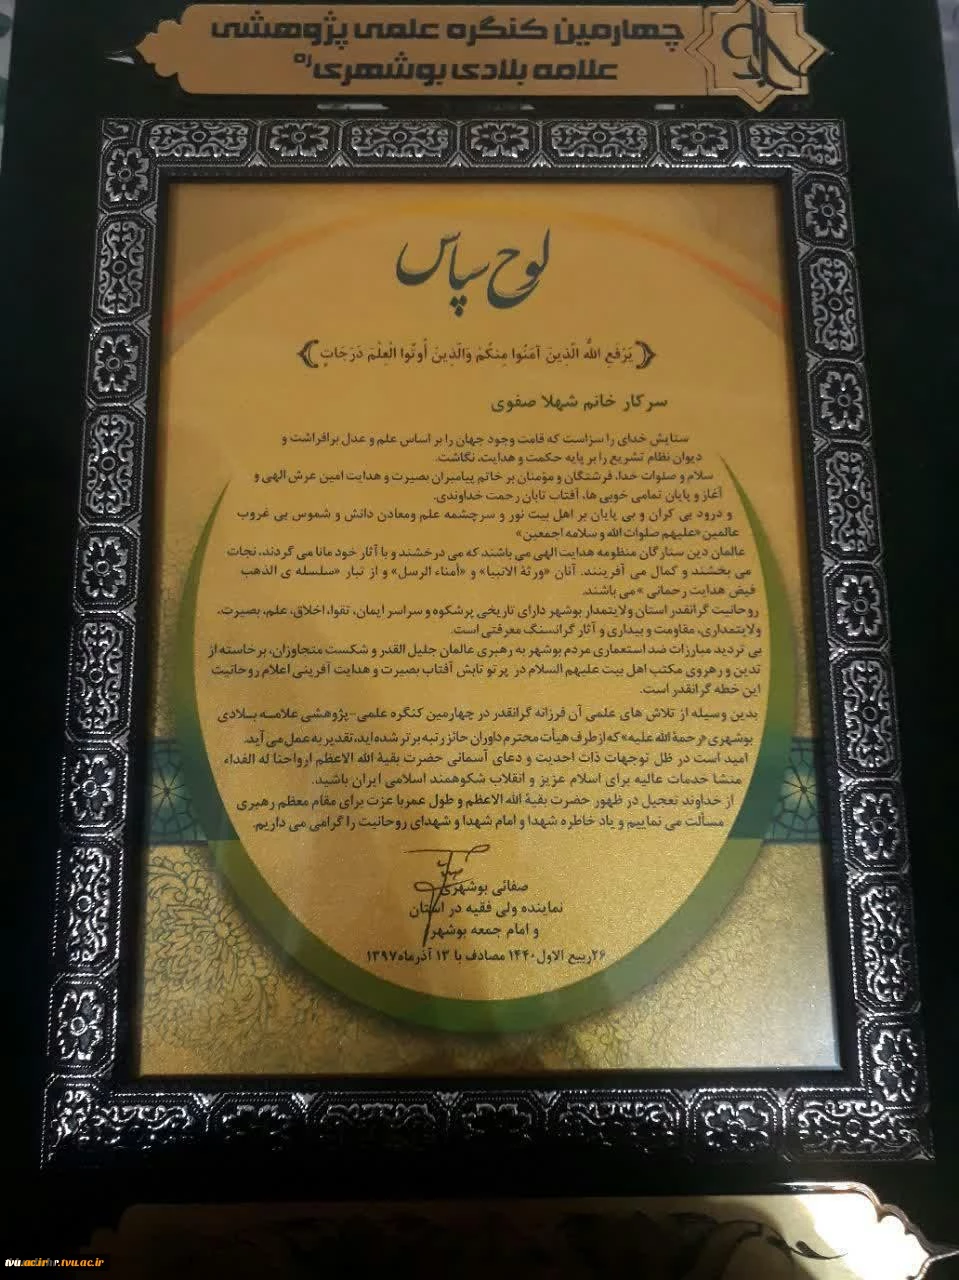 چهارمین کنگره علمی پژوهشی
علامه بلادی بوشهری ره
لوح سپاس
﴿يَرْفَعِ اللَّهُ الَّذِينَ آمَنُوا مِنكُمْ وَالَّذِينَ أُوتُوا الْعِلْمَ دَرَجَاتٍ﴾
سرکار خانم شهلا صفوی
ستایش خدای را سزاست که قامت وجود جهان را بر اساس علم و عدل برافراشت و
دیوان نظام تشریع را بر پایه حکمت و هدایت، نگاشت.
سلام و صلوات خدا، فرشتگان و مؤمنان بر خاتم پیامبران بصیرت و هدایت امین عرش الهی و
آغاز و پایان تمامی خوبی ها، آفتاب تابان رحمت خداوندی.
و درود بی کران و بی پایان بر اهل بیت نور و سرچشمه علم ومعادن دانش و شموس بی غروب
عالمین«علیهم صلوات الله و سلامه اجمعین»
عالمان دین ستارگان منظومه هدایت الهی می باشند که می درخشند و با آثار خود مانا می گردند، نجات
می بخشند و کمال می آفرینند. آنان «ورثة الانبیا» و «أمناء الرسل» و از تبار «سلسله ی الذهب
فیض هدایت رحمانی » می باشند.
روحانیت گرانقدر استان ولایتمدار بوشهر دارای تاریخی پرشکوه و سراسر ایمان، تقوا، اخلاق، علم، بصیرت،
ولایتمداری، مقاومت و بیداری و آثار گرانسنگ معرفتی است.
بی تردید مبارزات ضد استعماری مردم بوشهر به رهبری عالمان جلیل القدر و شکست متجاوزان، برخاسته از
تدین و رهروی مکتب اهل بیت علیهم السلام در پرتو تابش آفتاب بصیرت و هدایت آفرینی اعلام روحانیت
این خطه گرانقدر است.
بدین وسیله از تلاش های علمی آن فرزانه گرانقدر در چهارمین کنگره علمی-پژوهشی علامه بلادی
بوشهری «رحمة الله علیه» که از طرف هیأت محترم داوران حائز رتبه برتر شده اید، تقدیر به عمل می آید.
امید است در ظل توجهات ذات احدیت و دعای آسمانی حضرت بقیة الله الاعظم ارواحنا له الفداء
منشا خدمات عالیه برای اسلام عزیز و انقلاب شکوهمند اسلامی ایران باشید.
از خداوند تعجیل در ظهور حضرت بقیة الله الاعظم و طول عمر با عزت برای مقام معظم رهبری
مسألت می نماییم و یاد خاطره شهدا و امام شهدا و شهدای روحانیت را گرامی می داریم.
صفائی بوشهری
نماینده ولی فقیه در استان
و امام جمعه بوشهر
۲۶ربیع الاول۱۴۴۰ مصادف با ۱۳ آذرماه۱۳۹۷